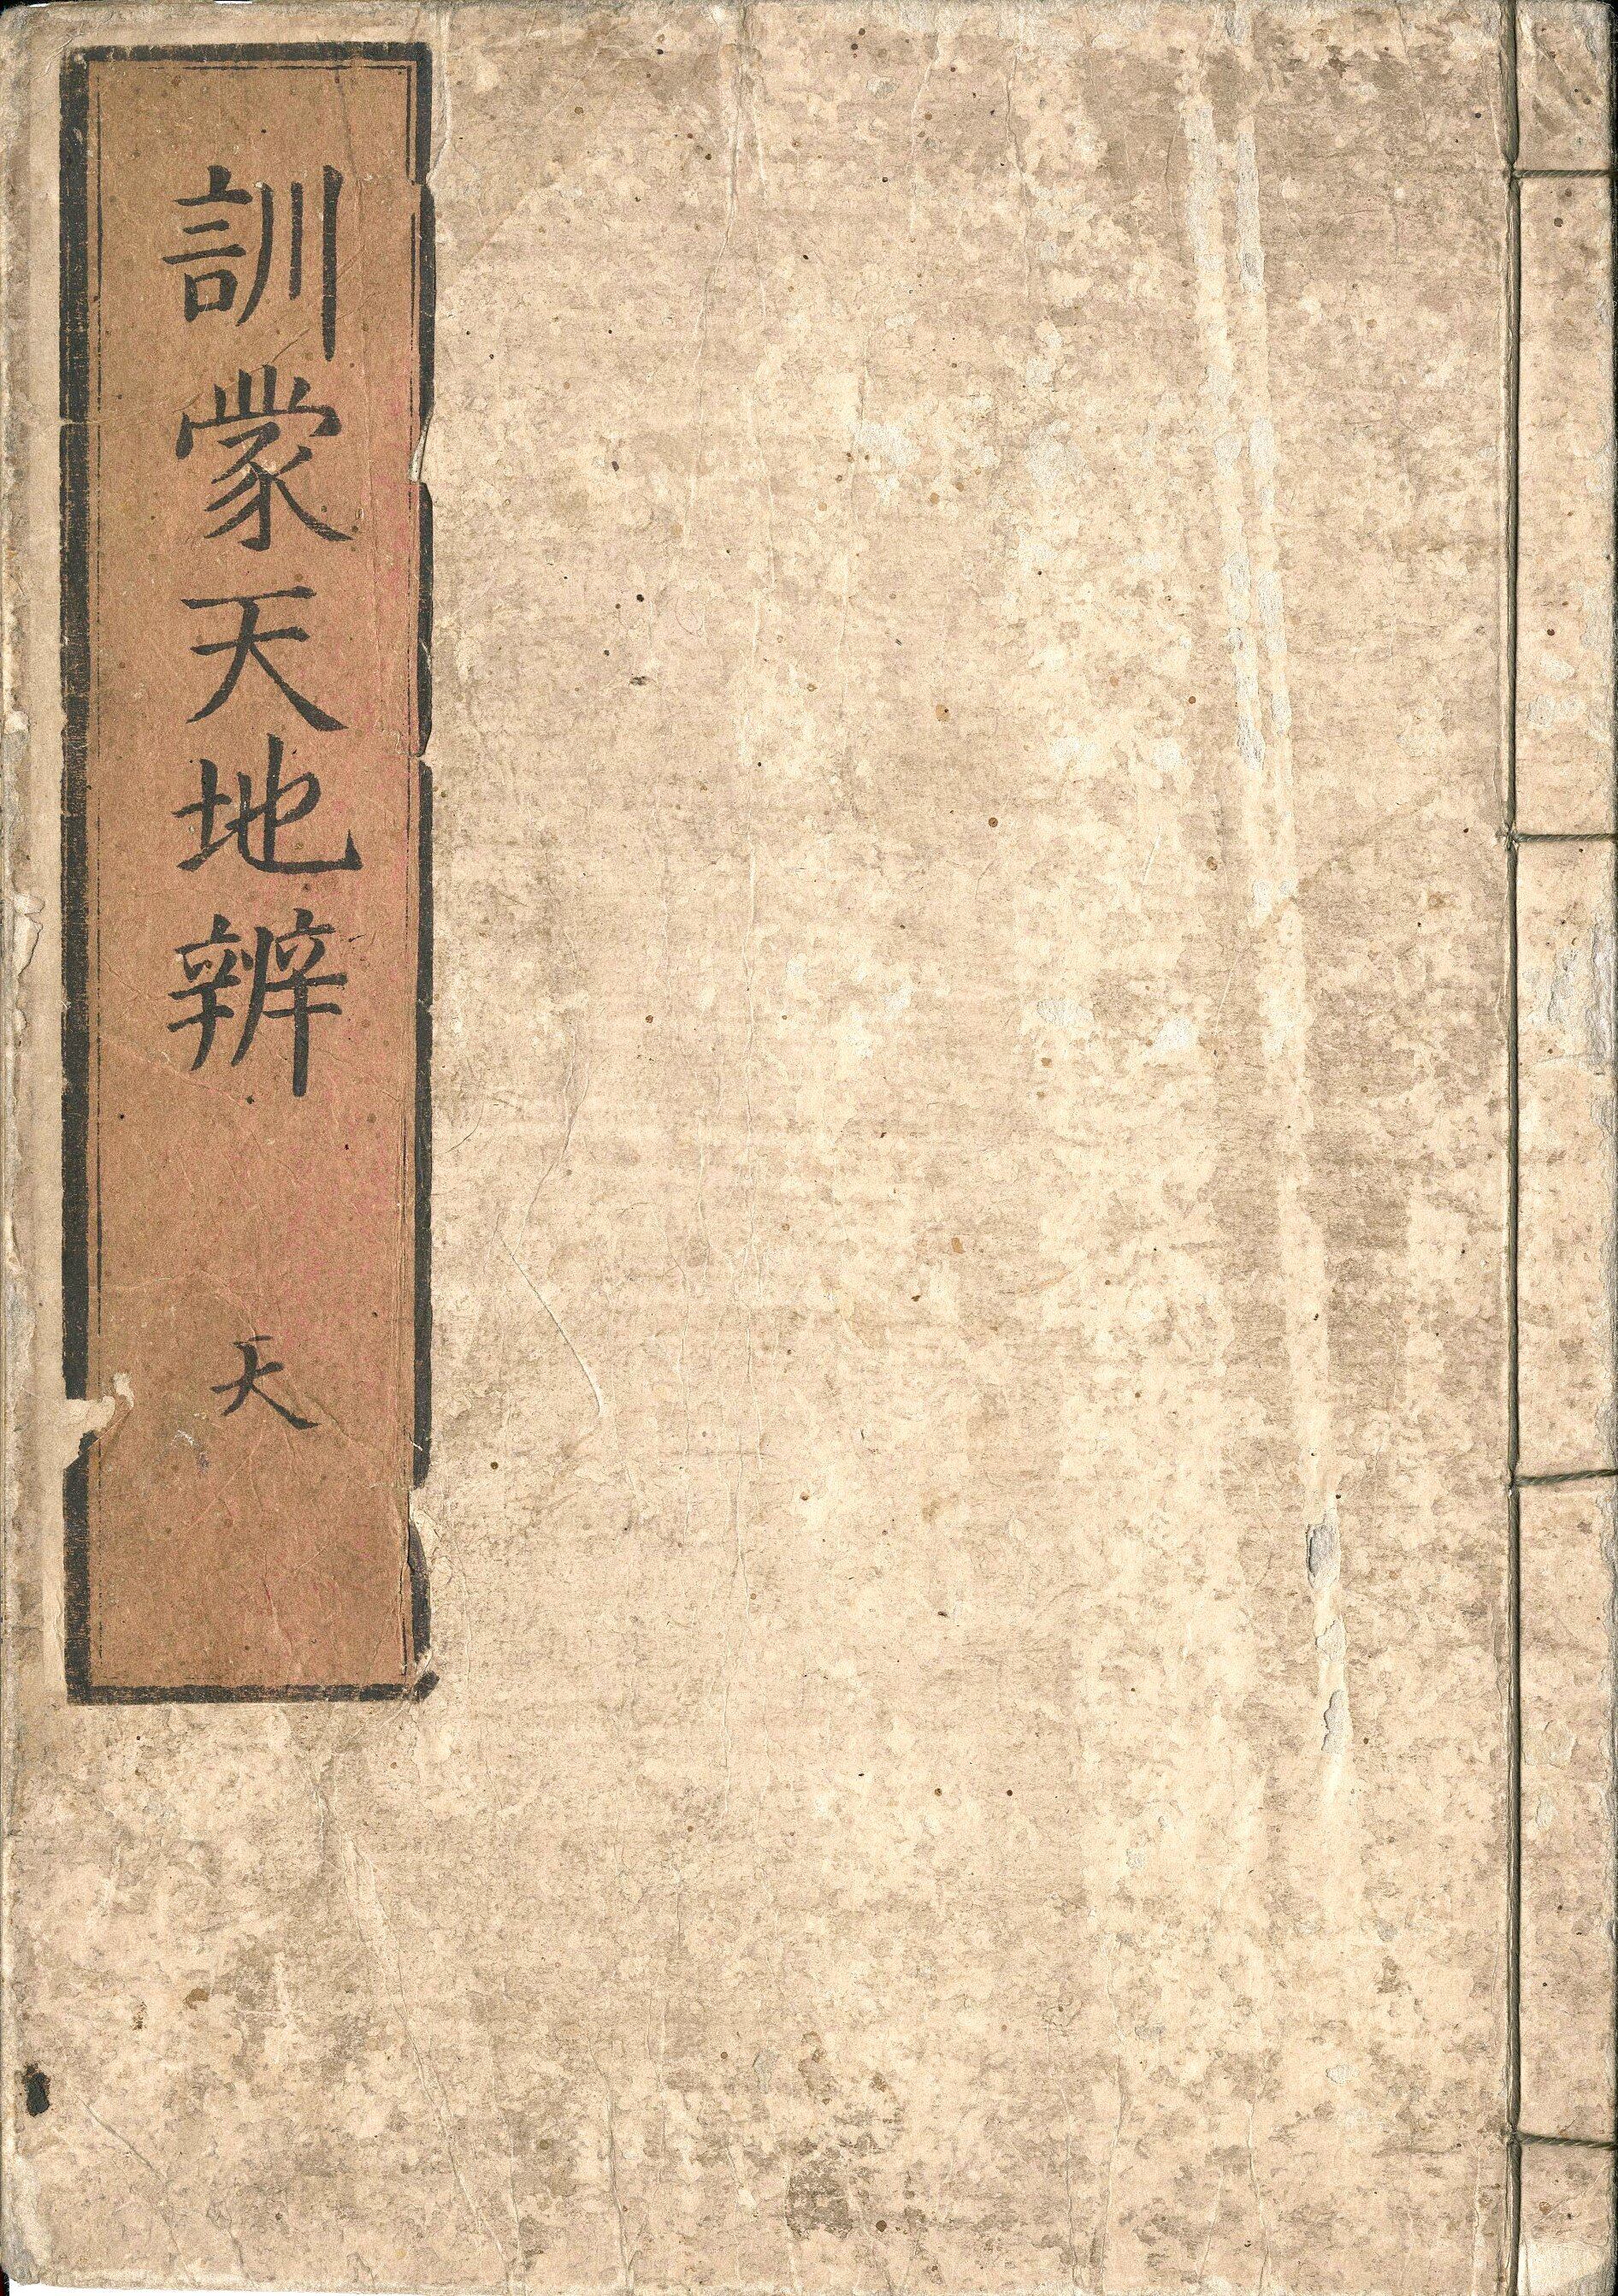 訓蒙天地辨
天